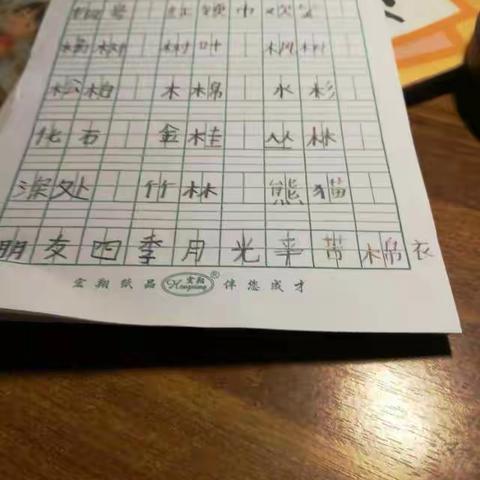 号 红领巾 欢笑
杨树 树叶 枫树
松柏 木棉 水杉
化石 金桂 丛林
深处 竹林 熊猫
朋友四季月光辛苦棉衣
宏翔纸品 宏翔 Hongxiang ® 伴您成才